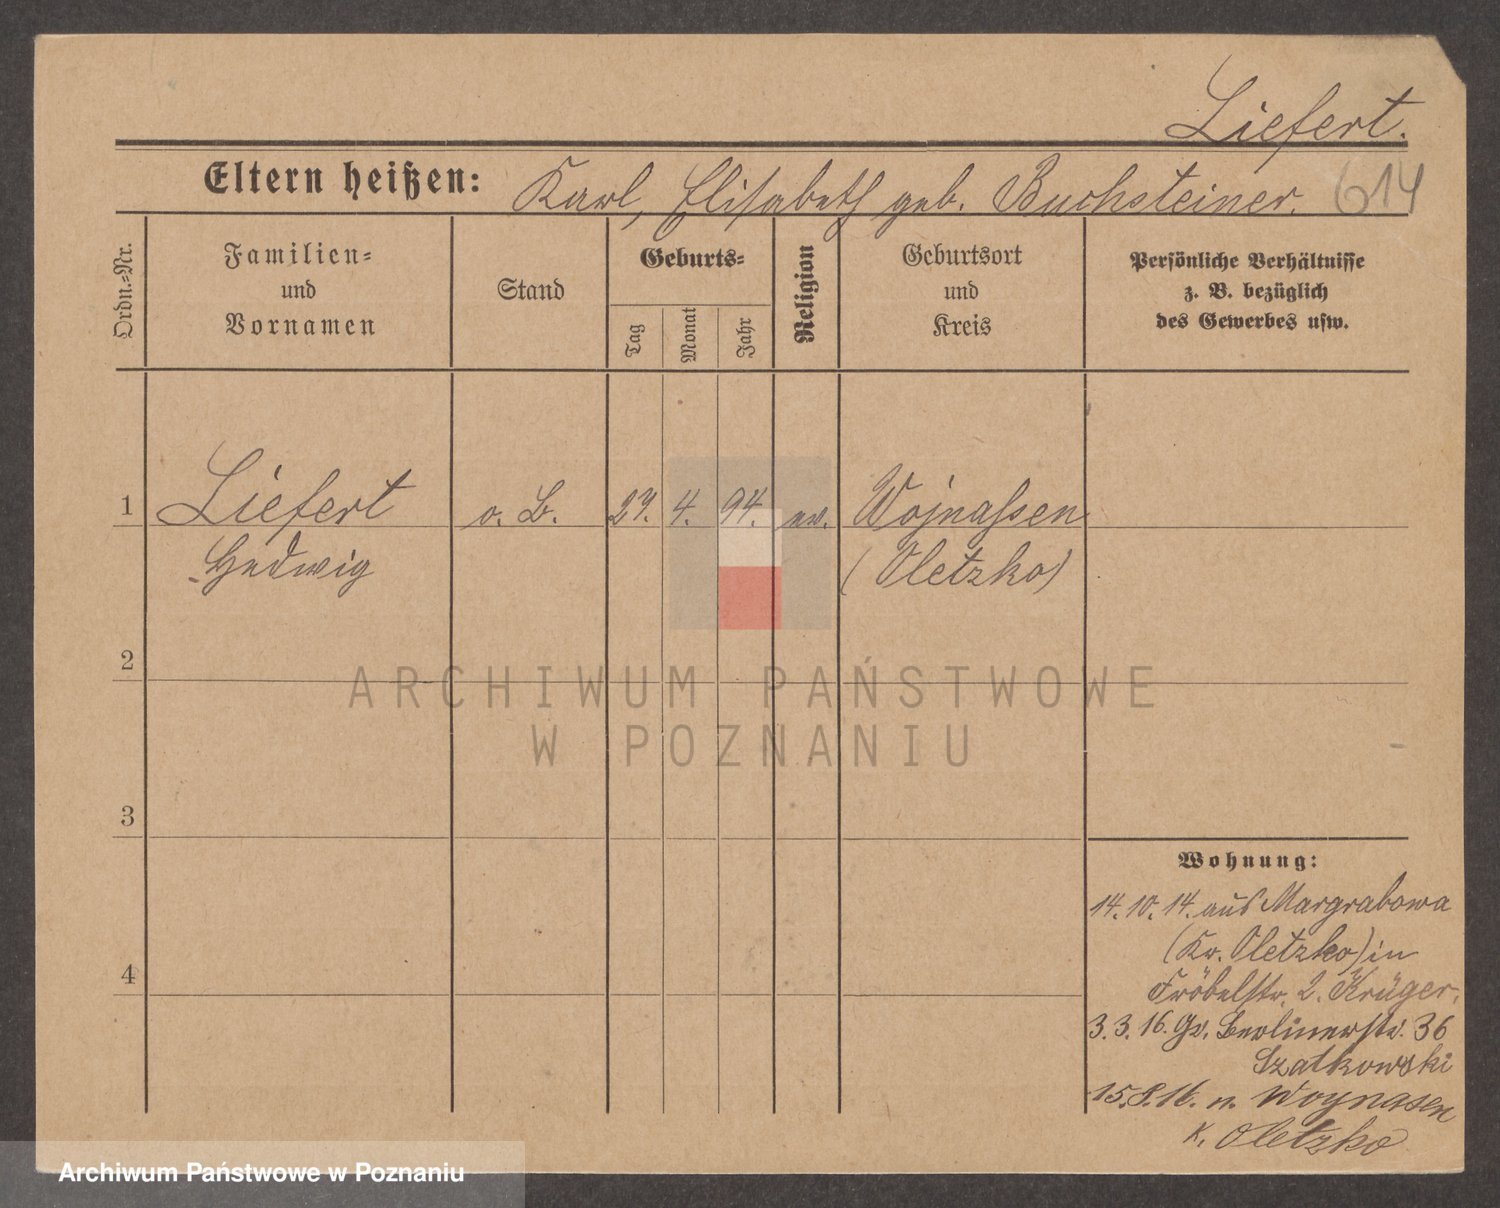 Liefert.
Eltern heißen: Karl, Elisabeth geb. Buchsteiner. 614
Ordn.-Nr.
Familien-
und
Vornamen
Stand
Geburts-
Tag
Monat
Jahr
Religion
Geburtsort
und
Kreis
Persönliche Verhältnisse
z. B. bezüglich
des Gewerbes usw.
1 Liefert o. B. 27. 4. 94. ev. Wojnassen
Hedwig (Oletzko)
2
ARCHIWUM PAŃSTWOWE
W POZNANIU
3
Wohnung:
14. 10. 14. aus Margrabowa
(Kr. Oletzko) in
Fröbelstr. 2. Krüger.
3. 3. 16. Gr. Berlinerstr. 36
Szatkowski
15. 8. 16. n. Woynasen
K. Oletzko
4
Archiwum Państwowe w Poznaniu